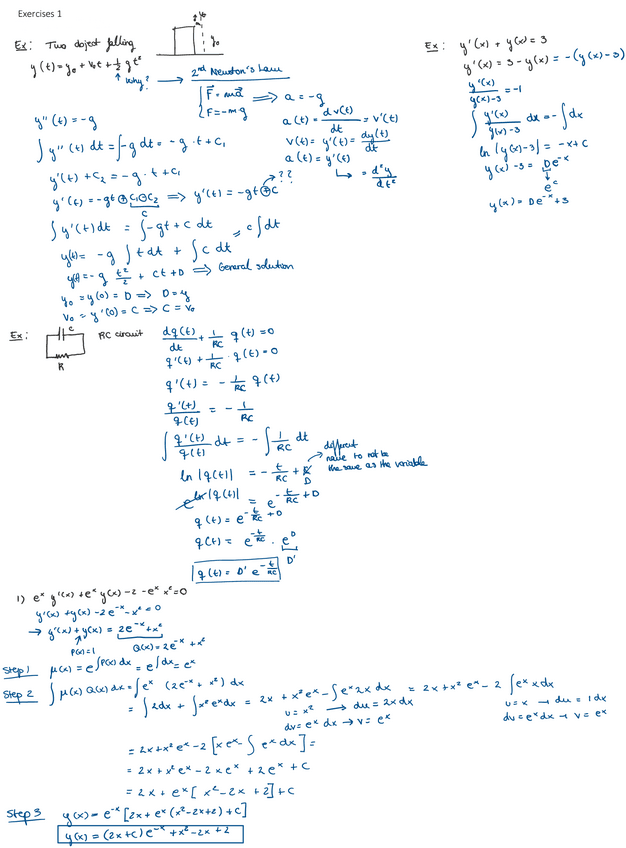 Exercises 1
Ex: Two object falling
y(t) = y₀ + v₀t + ½ g t²
↑ Why? → 2nd Newton's Law
y₀
{ F⃗ = ma⃗ ⟹ a = -g
F = -mg
a(t) = dv(t)/dt = v'(t)
v(t) = y'(t) = dy(t)/dt
a(t) = y'(t)
↳ = d²y/dt²
y''(t) = -g
∫ y''(t) dt = ∫ -g dt = -g · t + C₁
y'(t) + C₂ = -g · t + C₁
y'(t) = -gt ⊕ C₁ ⊖ C₂ ⟹ y'(t) = -gt ⊕ C
C
??
∫ y'(t) dt = ∫ -gt + C dt
y(t) = -g ∫ t dt + ∫ C dt
C ∫ dt
y(t) = -g t²/2 + Ct + D ⟹ General solution
y₀ = y(0) = D ⟹ D = y
v₀ = y'(0) = C ⟹ C = v₀
Ex: y'(x) + y(x) = 3
y'(x) = 3 - y(x) = -(y(x) - 3)
y'(x)/y(x)-3 = -1
∫ y'(x)/y(x)-3 dx = -∫ dx
ln |y(x) - 3| = -x + C
y(x) - 3 = D e⁻ˣ
↓
eᶜ
y(x) = D e⁻ˣ + 3
Ex: C
R
RC circuit
dq(t)/dt + 1/RC q(t) = 0
q'(t) + 1/RC · q(t) = 0
q'(t) = - 1/RC q(t)
q'(t)/q(t) = - 1/RC
∫ q'(t)/q(t) dt = -∫ 1/RC dt
different
name to not be
the same as the variable
ln |q(t)| = - t/RC + D
e^(ln |q(t)|) = e^(-t/RC + D)
q(t) = e^(-t/RC + D)
q(t) = e^(-t/RC) · e^D
D'
q(t) = D' e^(-t/RC)
1) eˣ y'(x) + eˣ y(x) - 2 - eˣ x² = 0
y'(x) + y(x) - 2e⁻ˣ - x² = 0
→ y'(x) + y(x) = 2e⁻ˣ + x²
P(x) = 1 Q(x) = 2e⁻ˣ + x²
Step 1 μ(x) = e^(∫P(x) dx) = e^(∫dx) = eˣ
Step 2 ∫ μ(x) Q(x) dx = ∫ eˣ (2e⁻ˣ + x²) dx
= ∫ 2dx + ∫ x² eˣ dx = 2x + x² eˣ - ∫ eˣ 2x dx = 2x + x² eˣ - 2 ∫ eˣ x dx
u = x² → du = 2x dx
dv = eˣ dx → v = eˣ
u = x → du = 1 dx
dv = eˣ dx → v = eˣ
= 2x + x² eˣ - 2 [x eˣ - ∫ eˣ dx] =
= 2x + x² eˣ - 2x eˣ + 2eˣ + C
= 2x + eˣ [x² - 2x + 2] + C
Step 3 y(x) = e⁻ˣ [2x + eˣ (x² - 2x + 2) + C]
y(x) = (2x + C) e⁻ˣ + x² - 2x + 2